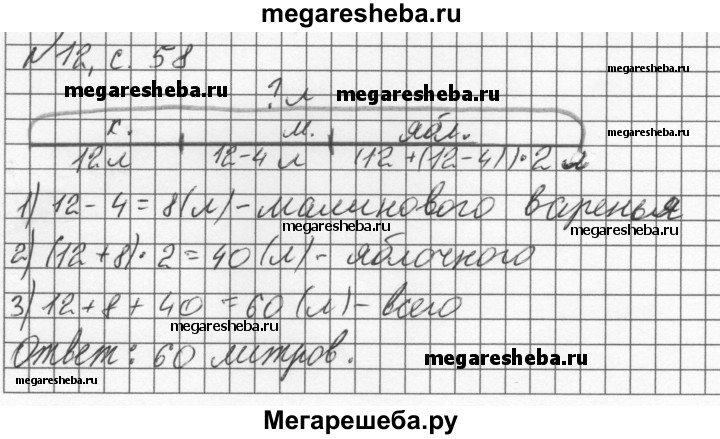 megaresheba.ru
№12, с. 58
megaresheba.ru
megaresheba.ru
megaresheba.ru
? л
к. м. ябл.
megaresheba.ru
12 л 12-4 л (12+(12-4))·2 л
1) 12-4=8(л)-малинового варенья
megaresheba.ru
megaresheba.ru
2) (12+8)·2=40(л)-яблочного
3) 12+8+40=60(л)-всего
megaresheba.ru
Ответ: 60 литров.
megaresheba.ru
megaresheba.ru
Мегарешеба.ру